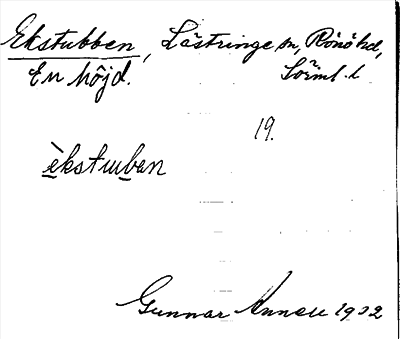 Ekstubben, Lästringe sn, Rönö hd,
En höjd. Sörml. l
19.
èkstuban
Gunnar 1932